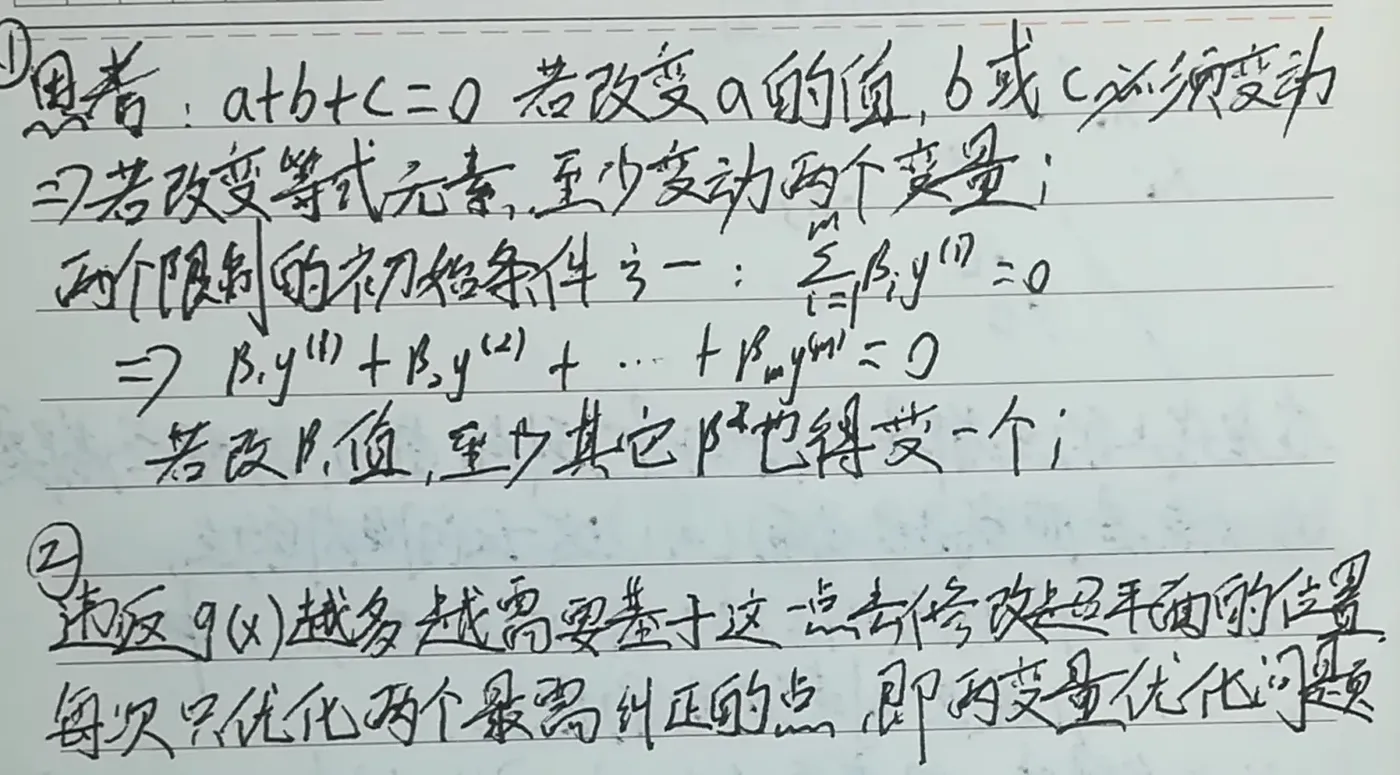 ① 思考：a+b+c=0 若改变a的值，b或c必须变动
⇒若改变等式元素，至少变动两个变量；
两个限制的初始条件之一：∑_{i=1}^{m} β_i y^{(i)} = 0
⇒ β₁y^{(1)} + β₂y^{(2)} + … + β_m y^{(m)} = 0
若改β₁值，至少其它β也得变一个；
②
违反g(x)越多越需要基于这一点去修改超平面的位置
每次只优化两个最需纠正的点，即两变量优化问题